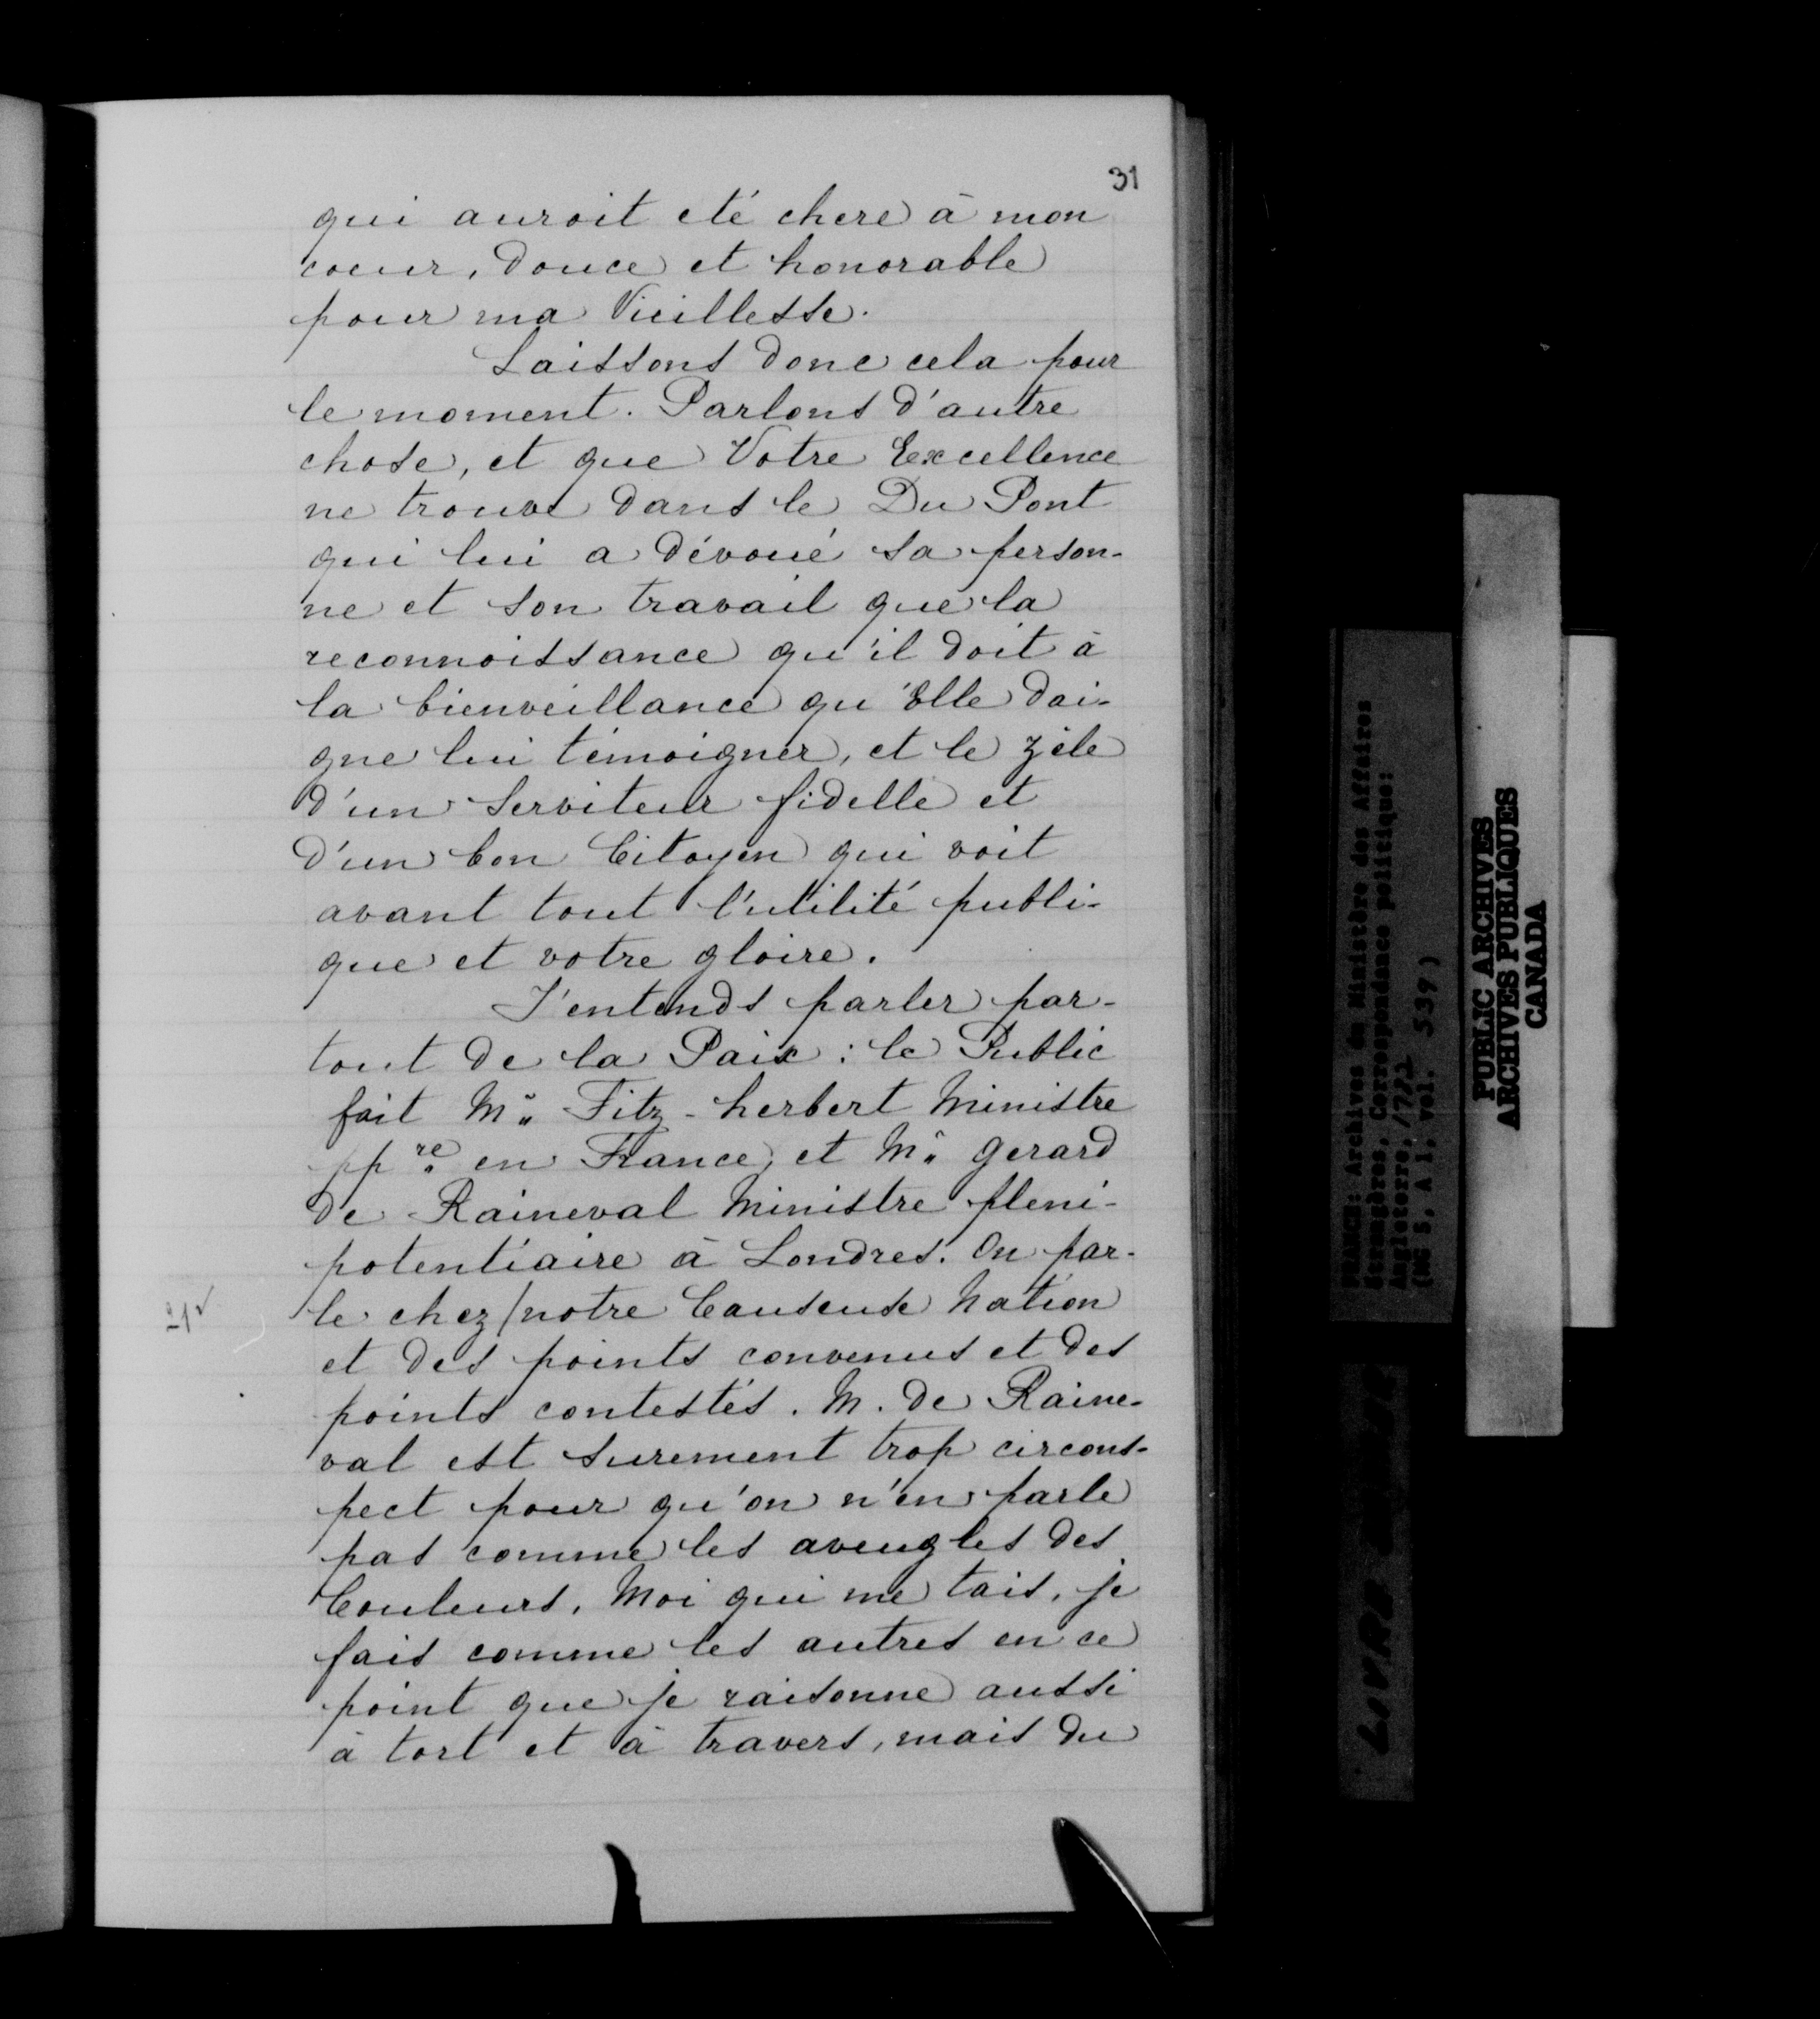 31
qui auroit eté chere à mon
coeur, douce et honorable
pour ma Vieillesse.
Laissons donc cela pour
le moment. Parlons d'autre
chose, et que Votre Excellence
ne trouve dans le Du Pont
qui lui a dévoué sa person-
ne et son travail que la
reconnoissance qu'il doit à
la bienveillance qu'Elle dai-
gne lui témoigner, et le zèle
d'un Serviteur fidelle et
d'un bon Citoyen qui voit
avant tout l'utilité publi-
que et votre gloire.
J'entends parler par-
tout de la Paix : le Public
fait Mr. Fitz-herbert Ministre
ppre. en France, et Mr. Gerard
de Raineval Ministre pleni-
potentiaire à Londres. On par-
21v
le chez/notre Causeuse Nation
et des points convenus et des
points contestés. M. de Raine-
val est surement trop circons-
pect pour qu'on n'en parle
pas comme les aveugles des
Couleurs. Moi qui me tais, je
fais comme les autres en ce
point que je raisonne aussi
à tort et à travers, mais du
FRANCE: Archives du Ministère des Affaires
étrangères, Correspondance politique:
Angleterre, 1782
(MG 5, A 1, vol. 539)
PUBLIC ARCHIVES
ARCHIVES PUBLIQUES
CANADA
LIVRE